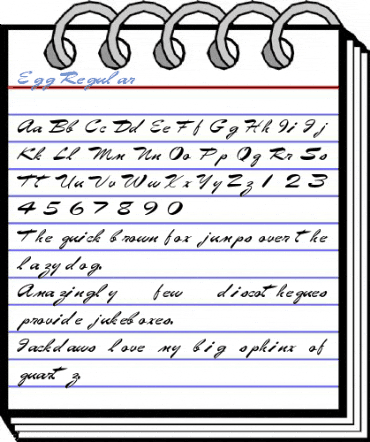 Egg Regular
Aa Bb Cc Dd Ee Ff Gg Hh Ii Jj
Kk Ll Mm Nn Oo Pp Qq Rr Ss
Tt Uu Vv Ww Xx Yy Zz 1 2 3
4 5 6 7 8 9 0
The quick brown fox jumps over the
lazy dog.
Amazingly few discotheques
provide jukeboxes.
Jackdaws love my big sphinx of
quartz.